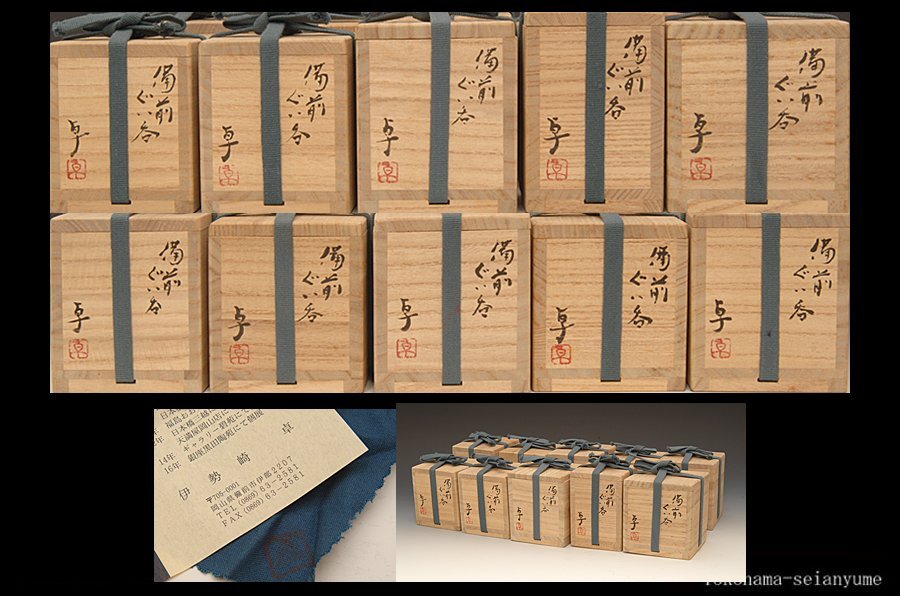 備前
ぐい呑
卓
卓
備前
ぐい呑
卓
卓
備前
ぐい呑
卓
卓
備前
ぐい呑
卓
卓
備前
ぐい呑
卓
卓
備前
ぐい呑
卓
卓
備前
ぐい呑
卓
卓
備前
ぐい呑
卓
卓
備前
ぐい呑
卓
卓
備前
ぐい呑
卓
卓
日本橋三越
天満屋岡山店に
14年 ギャラリー碧苑にて
16年 銀座黒田陶苑にて個展
伊勢﨑 卓
〒705-0001
岡山県備前市伊部2207
TEL(0869)63-2581
FAX(0869)63-2581
備前
ぐい呑
卓
備前
ぐい呑
卓
備前
ぐい呑
卓
備前
ぐい呑
卓
備前
ぐい呑
卓
Yokohama-seianyume